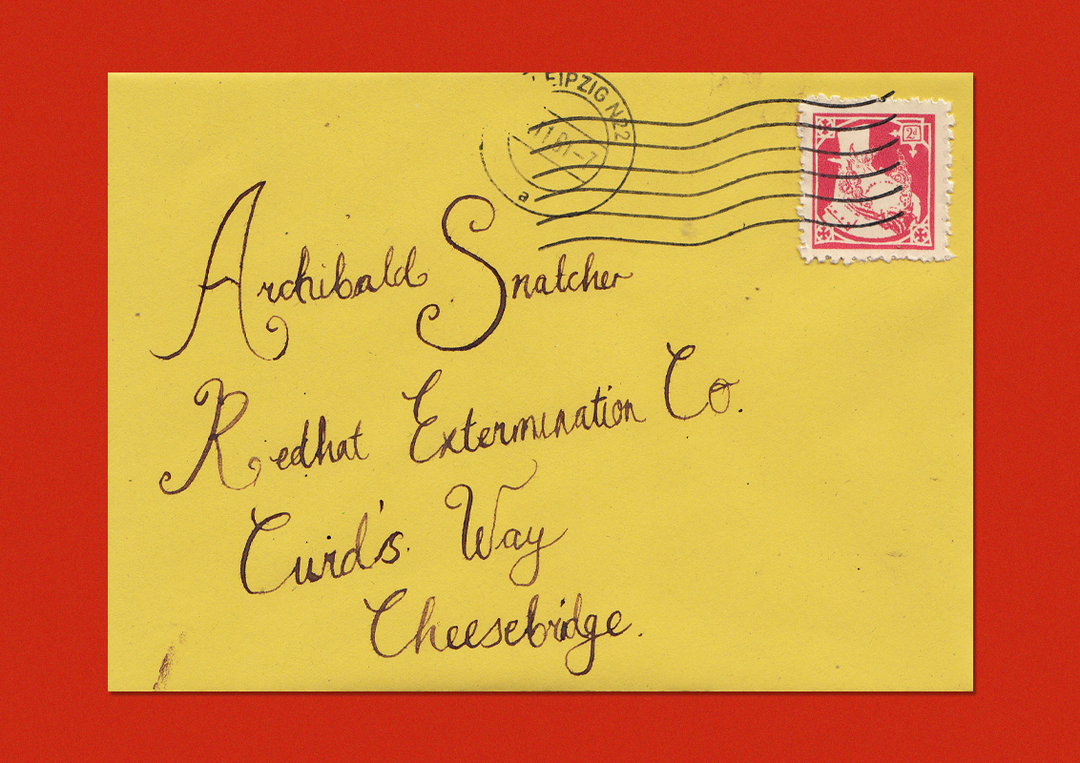 LEIPZIG N22
a
2d
Archibald Snatcher
Redhat Extermination Co.
Curd's Way
Cheesebridge.